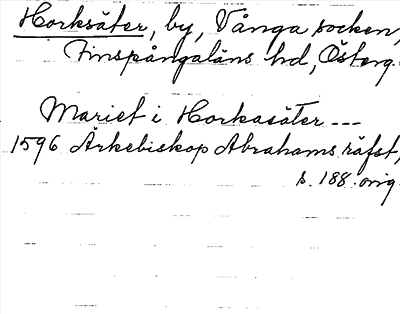 Horksäter, by, Vånga socken,
Finspångaläns hd, Österg.
Mariet i Horkasäter ---
1596 Ärkebiskop Abrahams räfst,
s. 188. orig.